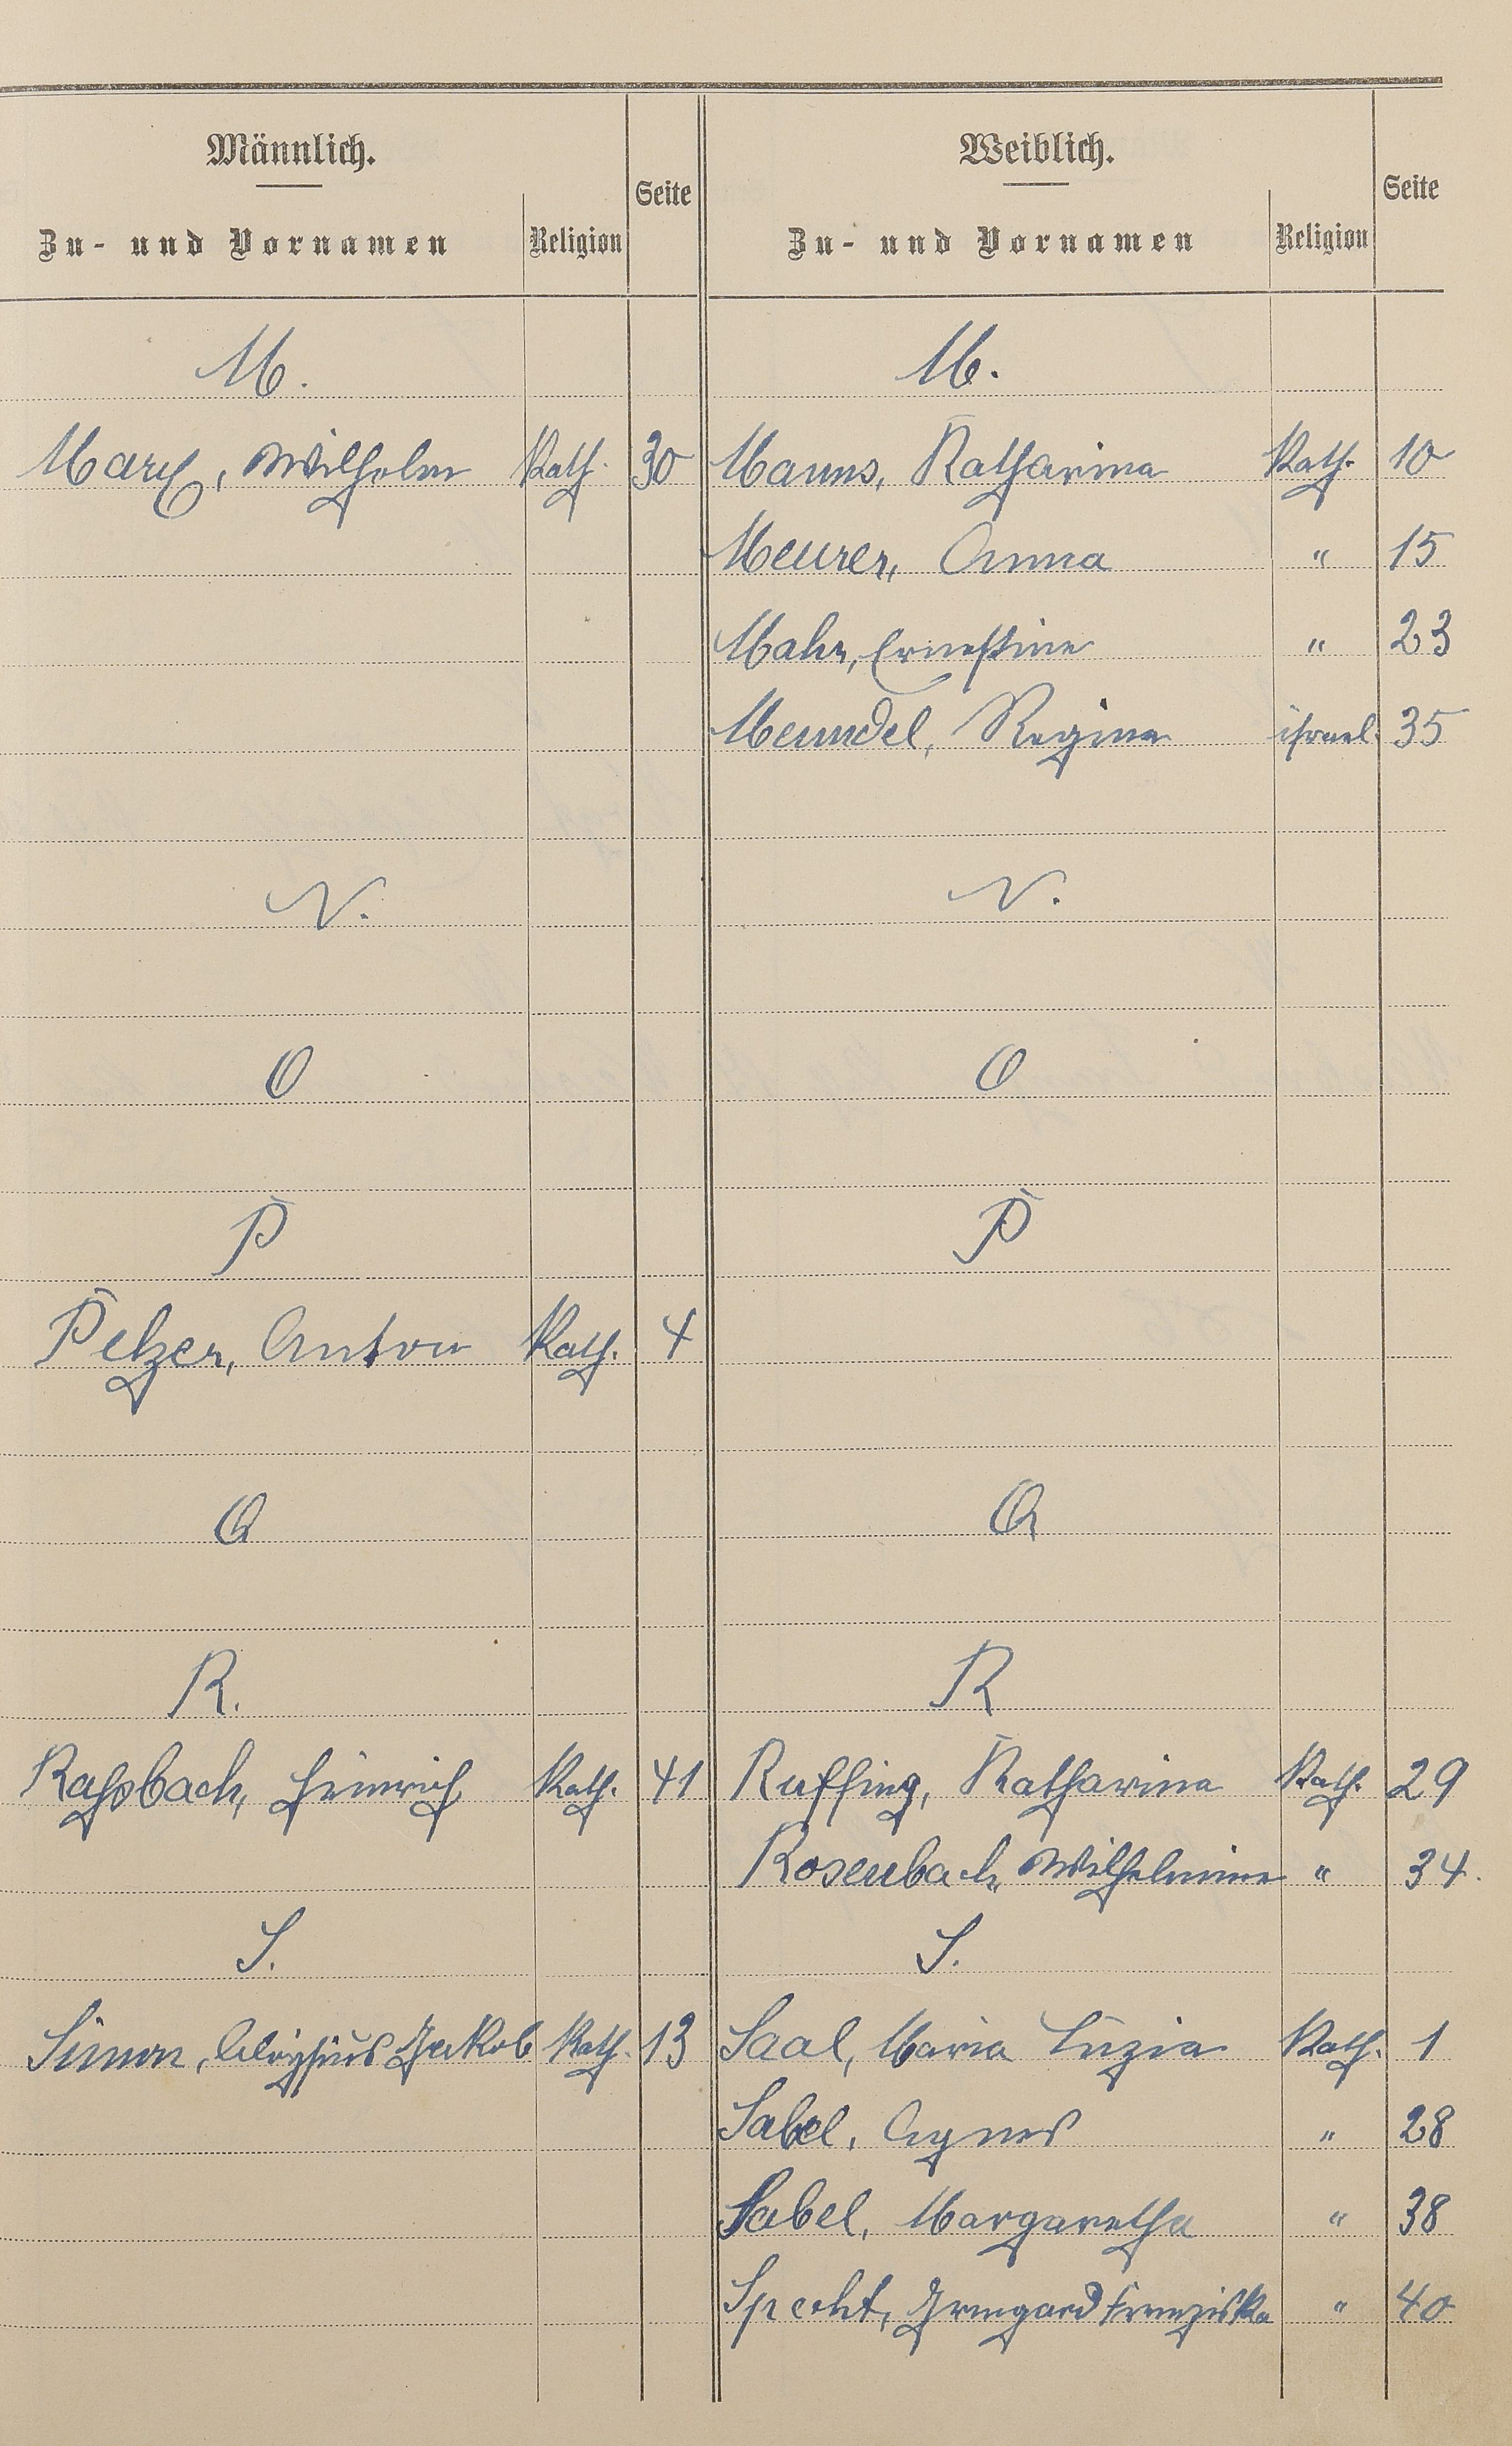 Männlich.
Zu- und Vornamen Religion Seite
Weiblich.
Zu- und Vornamen Religion Seite
M. M.
Marx, Wilhelm Kath. 30 Manns, Katharina Kath. 10
Meurer, Anna " 15
Mahr, Ernestine " 23
Meundel, Regina israel. 35
N. N.
O O
P P
Pelzer, Anton Kath. 4
Q Q
R. R
Raßbach, Heinrich Kath. 41 Ruffing, Katharina Kath. 29
Rosenbach, Wilhelmine " 34.
S. S.
Simon, Aloysius Jakob Kath. 13 Saal, Maria Luzia Kath. 1
Sabel, Agnes " 28
Sabel, Margaretha " 38
Specht, Irmgard Franziska " 40